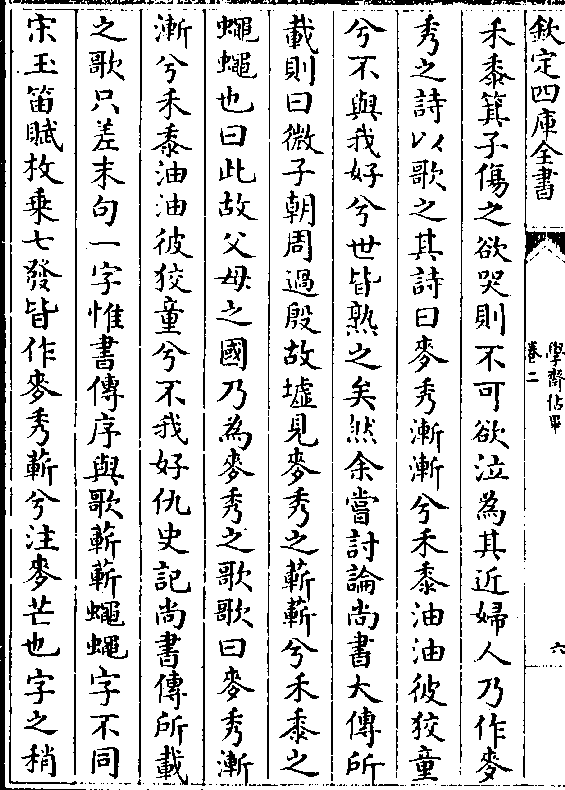 欽定四庫全書
學齋佔畢
卷二
六
禾黍箕子傷之欲哭則不可欲泣為其近婦人乃作麥
秀之詩以歌之其詩曰麥秀漸漸兮禾黍油油彼狡童
兮不與我好兮世皆熟之矣然余嘗討論尚書大傳所
載則曰微子朝周過殷故墟見麥秀之蔪蔪兮禾黍之
蠅蠅也曰此故父母之國乃為麥秀之歌歌曰麥秀漸
漸兮禾黍油油彼狡童兮不我好仇史記尚書傳所載
之歌只差末句一字惟書傳序與歌蔪蔪蠅蠅字不同
宋玉笛賦枚乗七發皆作麥秀蔪兮注麥芒也字之稍